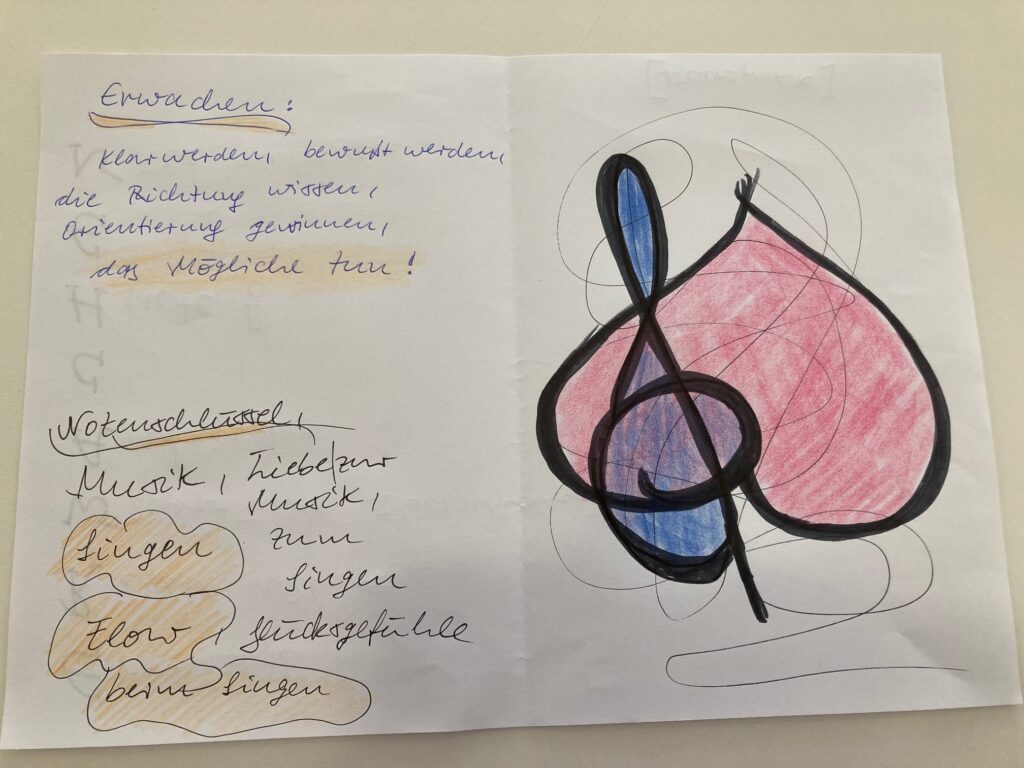 Erwachen:
Klarwerden, bewußt werden,
die Richtung wissen,
Orientierung gewinnen,
das Mögliche tun!
Notenschlüssel,
Musik, Liebe zur
Musik,
zum
Singen
Singen
Flow, Glücksgefühle
beim Singen